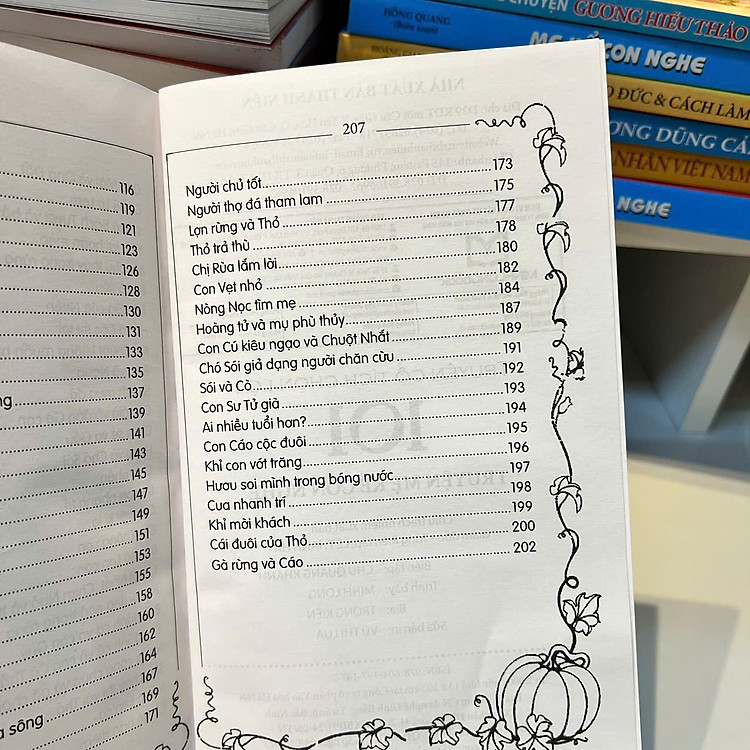 CHUYỆN GƯƠNG HIẾU THẢO
HỒNG QUANG
(Biên soạn)
MẸ KỂ CON NGHE
ĐỨC & CÁCH LÀM
ƠNG DŨNG CẢ
NHÂN VIỆT NAM
NGHE
116
119
121
123
126
128
130
131
133
135
ng 137
139
141
143
145
147
149
151
153
155
158
160
162
164
167
169
sông 171
207
Người chủ tốt 173
Người thợ đá tham lam 175
Lợn rừng và Thỏ 177
Thỏ trả thù 178
Chị Rùa lắm lời 180
Con Vẹt nhỏ 182
Nòng Nọc tìm mẹ 184
Hoàng tử và mụ phù thủy 187
Con Cú kiêu ngạo và Chuột Nhắt 189
Chó Sói giả dạng người chăn cừu 191
Sói và Cò 192
Con Sư Tử già 193
Ai nhiều tuổi hơn? 194
Con Cáo cộc đuôi 195
Khỉ con vớt trăng 196
Hươu soi mình trong bóng nước 197
Cua nhanh trí 198
Khỉ mời khách 199
Cái đuôi của Thỏ 200
Gà rừng và Cáo 202